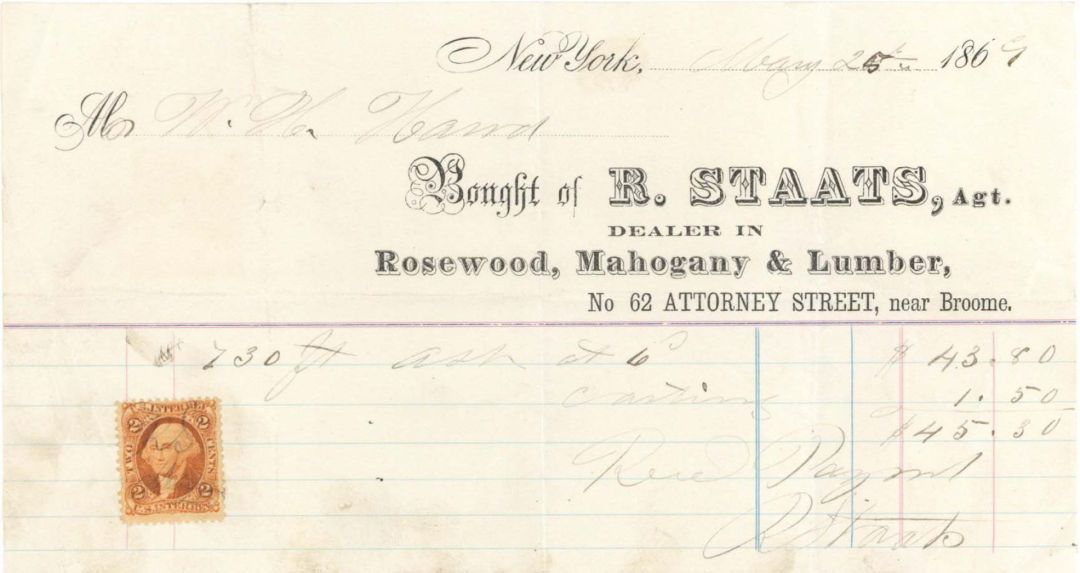 New York, May 25th 1869
Mr W. H. Hand
Bought of R. STAATS, Agt.
DEALER IN
Rosewood, Mahogany & Lumber,
No 62 ATTORNEY STREET, near Broome.
730 ft ash at 6c $ 43.80
Carting 1.50
$ 45.30
Recd Paymt
R Staats
U.S. INTER. REV.
2 2
TWO CENTS
2 2
U.S. INTER. REV.